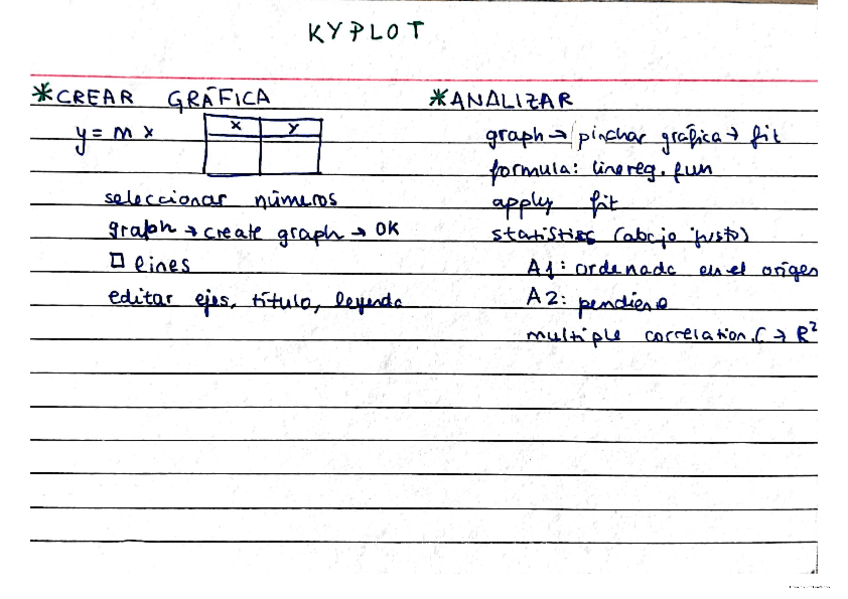 KYPLOT
*CREAR GRÁFICA
y = mx
x y
seleccionar números
graph → create graph → OK
□ lines
editar ejes, título, leyenda
*ANALIZAR
graph → pinchar gráfica → fit
formula: linereg.fun
apply fit
statistics (abajo justo)
A1: ordenada en el origen
A2: pendiene
multiple correlation.C → R²